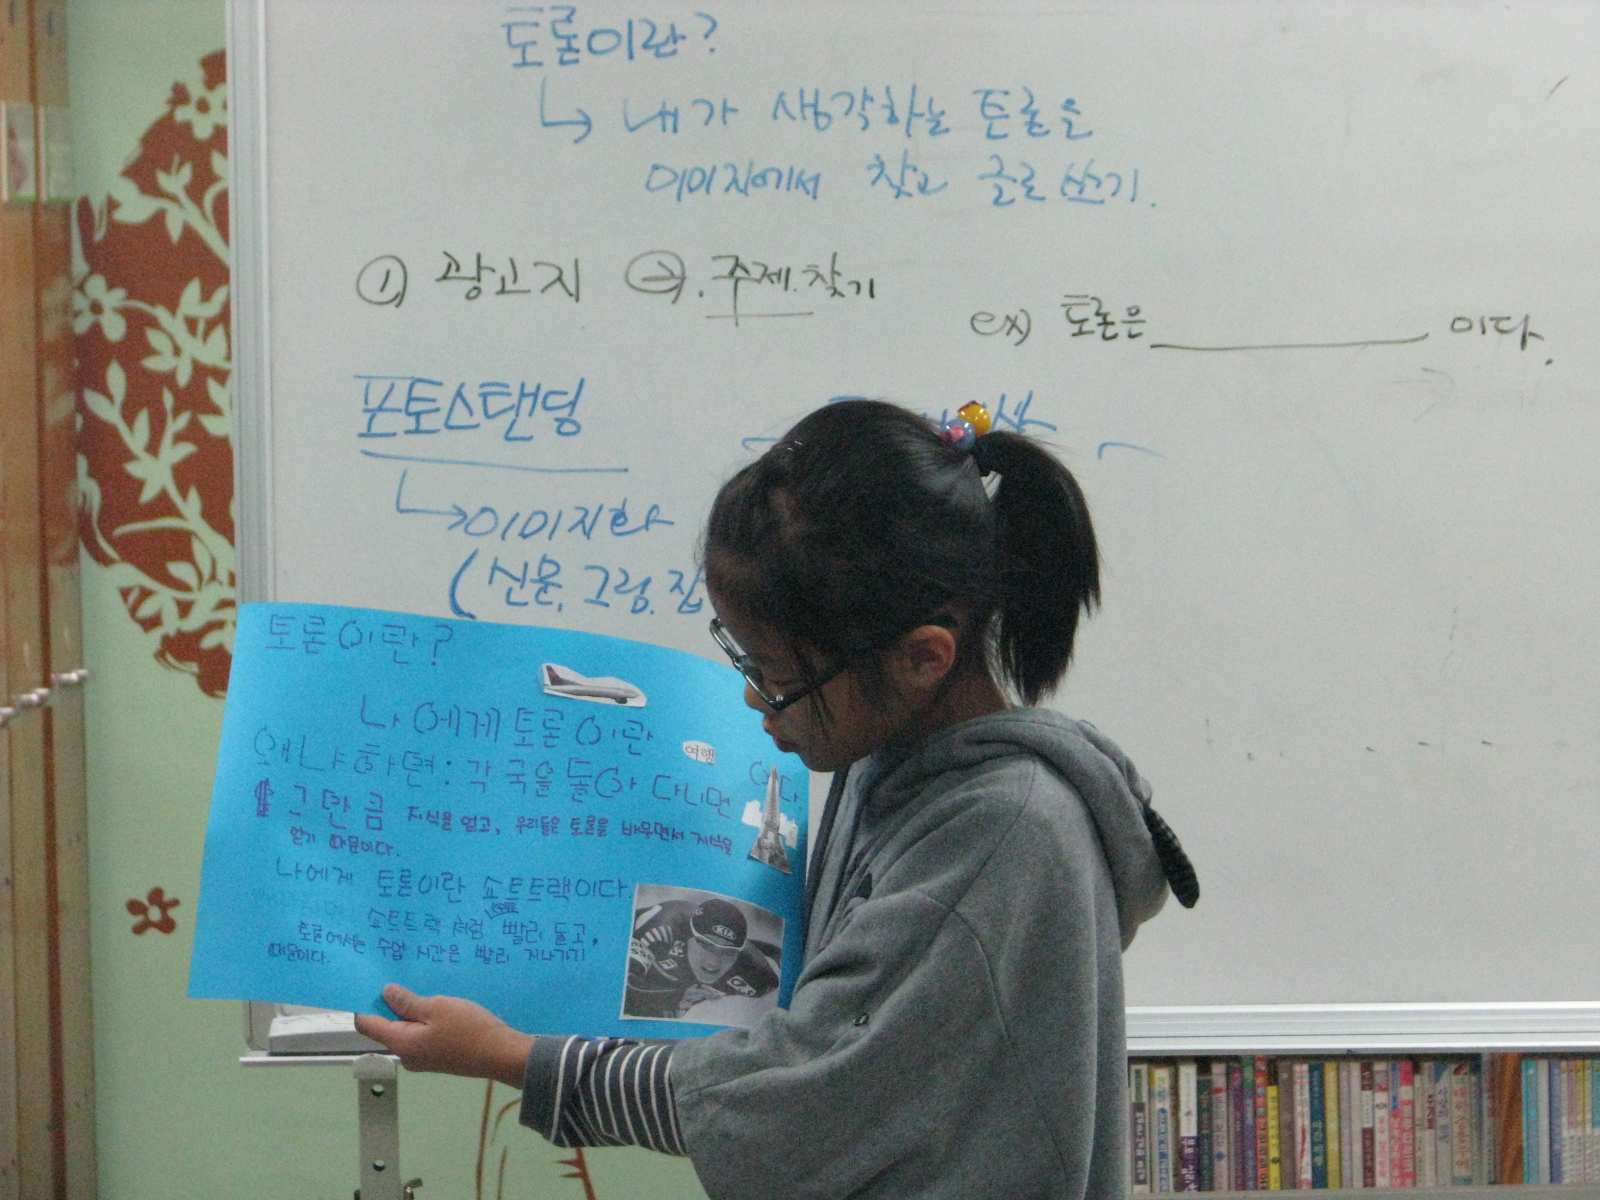 토론이란?
↳ 내가 생각하는 토론은
이미지에서 찾고 글로 쓰기.
① 광고지 ②. 주제.찾기
ex) 토론은 ________ 이다.
포토스탠딩
↳이미지화
(신문, 그림. 잡
토론이란?
나에게 토론이란 여행 이다.
왜냐하면: 각 국을 돌아 다니면
그만큼 지식을 얻고, 우리들은 토론을 배우면서 지식을
얻기 때문이다.
나에게 토론이란 쇼트트랙이다.
쇼트트랙 처럼 빨리 돌고,
토론에서는 수업 시간은 빨리 지나가기
때문이다.
KIA